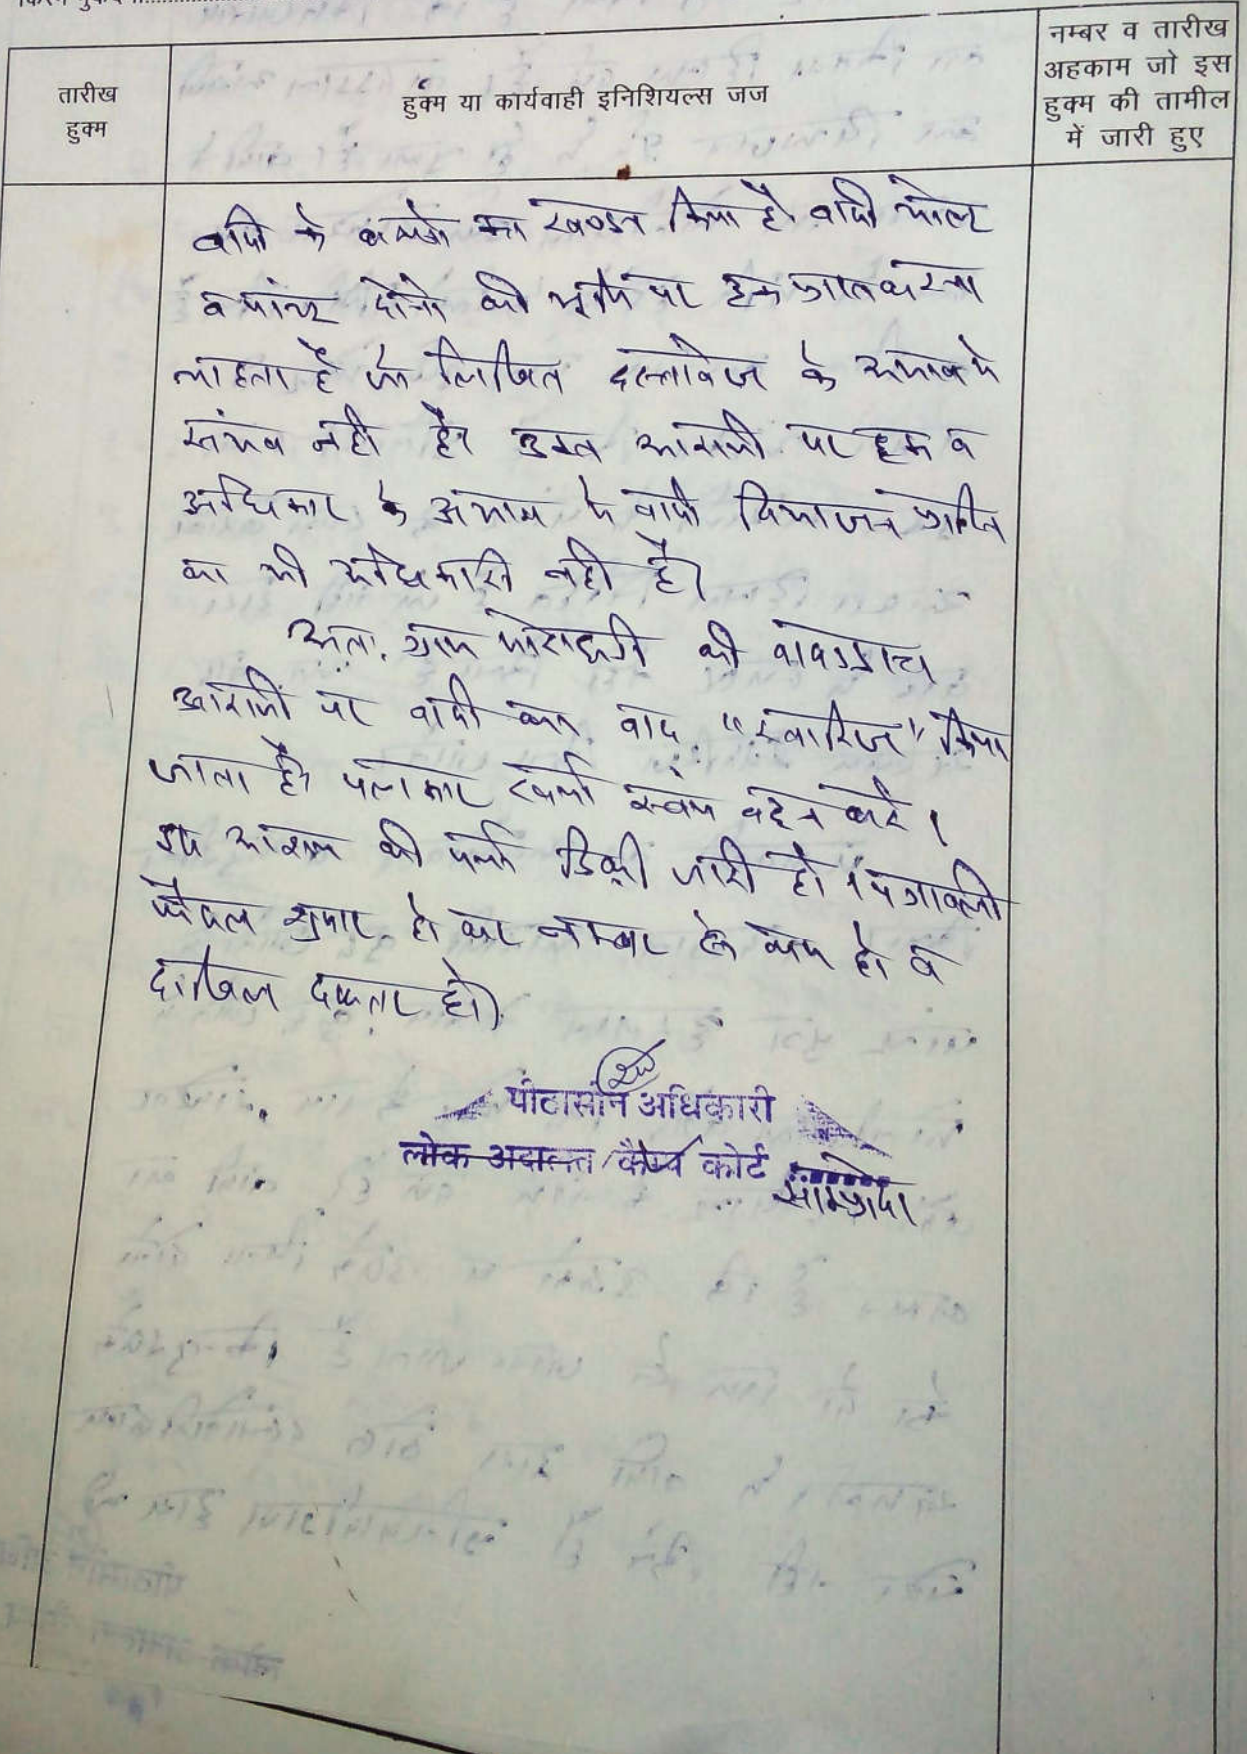 तारीख
हुक्म
हुक्म या कार्यवाही इनिशियल्स जज
नम्बर व तारीख
अहकाम जो इस
हुक्म की तामील
में जारी हुए
वादी के का खण्डन किया है। वादी
व दोनो की भूमि पर हक प्राप्त करना
चाहता है जो लिखित दस्तावेज के अभाव मे
संभव नही है। उक्त आराजी पर हक व
अधिकार के अभाव मे वादी विभाजन प्राप्ति
का भी अधिकारी नही है।
अतः ग्राम की वादग्रस्त
आराजी पर वादी का वाद "खारिज" किया
जाता है। पक्षकार खर्चा स्वंय वहन करे।
इस आशय की पर्चा डिक्री जारी हो। पत्रावली
फैसल शुमार हो कर नम्बर से कम हो व
दाखिल दफ्तर हो।
पीठासीन अधिकारी
लोक अदालत/कैम्प कोर्ट